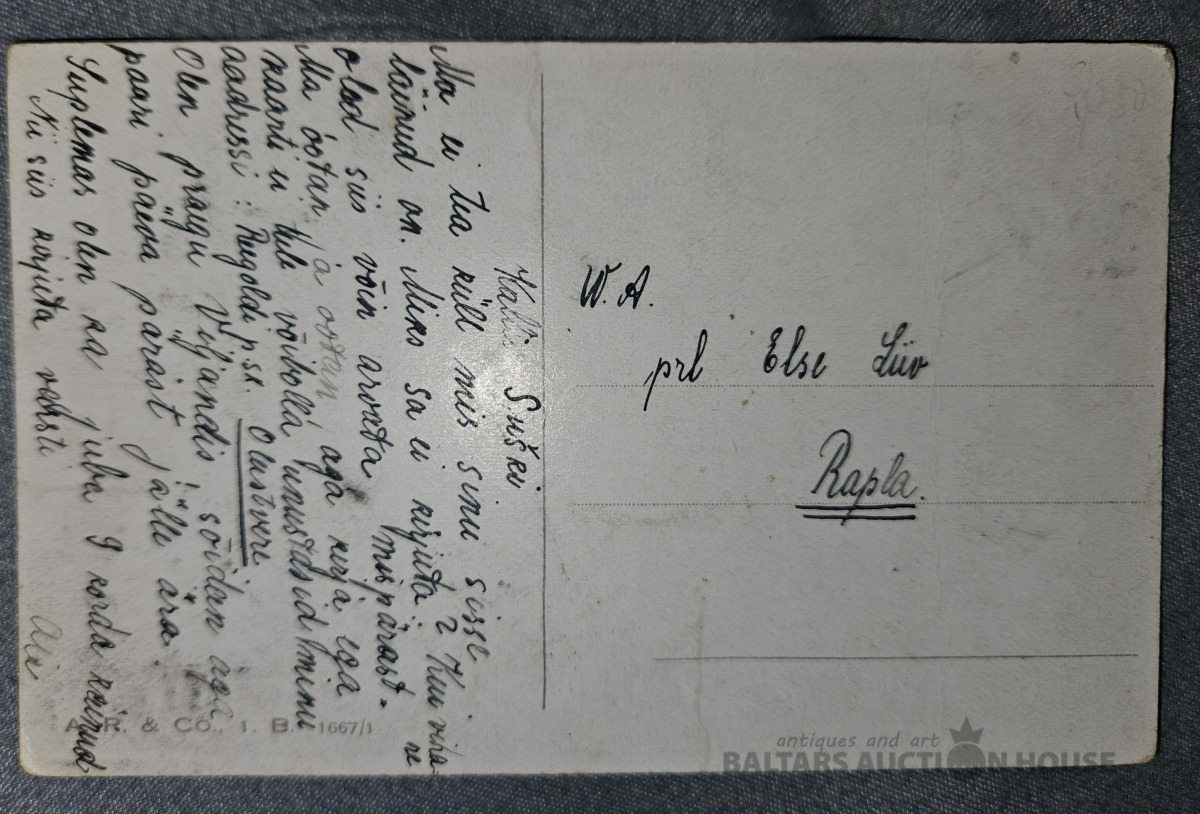 Kallis Suški
Ma ei tea küll mis sinu sisse
läinud on. Miks sa ei kirjuta? Kui viha-ne
oled siis võin arvata mispärast.
Ma ootan ja ootan aga kirja ega
kaarti ei tule võibolla unustasid minu
aadressi: Reegoldi p.sk. Olustvere
Olen praegu Viljandis, sõidan aga
paari päeva pärast jälle ära.
Suplemas olen ka juba 9 korda käinud
Nii siis kirjuta varsti
W. A.
prl Else Liiv
Rapla.
A. R. & Co., 1. B. 1667/1
antiques and art
BALTARS AUCTION HOUSE